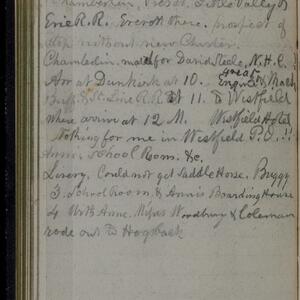 Chamberlin, Prest. Little Valley &
Erie R.R. Everett there. prospect of
stop without new Charter.
Chamberlin made for David Steele, N.H.C.
Arr at Dunkirk at 10. Great Engine & Mach
Buff & St. Line R.R. at 11. to Westfield
where arrive at 12 M. Westfield Hotel
Nothing for me in Westfield P.O.!!
Annie, School Room. &c.
Livery, Could not get Saddle Horse. Buggy
3. School Room & Annie's Boarding House
4 With Anne. Misses Woodbury & Coleman
rode out to Hogback